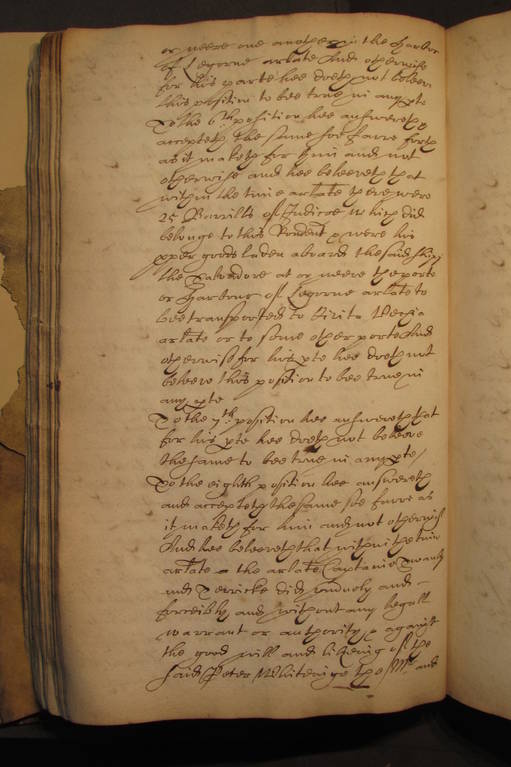 or neere one another in the harbor
of Legorne arlate And otherwise
for his parte hee doeth not beleeve
this position to bee true in any pte
To the 6th position hee answereth
accepteth the same soe farre forth
as it maketh for him and not
otherwise and hee beleeveth that
within the time arlate there were
25 Barrills of Indicoe which did
belonge to this Rondent were his
pper goods laden aboard the said shipp
the Salvadore at or neere the porte
or harbour of Legorne arlate to
bee transported to
arlate or to some other porte And
otherwise for his pte hee doeth not
beleeve this position to bee true in
any pte
To the 7th position hee answereth that
for his pte hee doeth not beleeve
the same to bee true in any pte
To the eighth position hee answereth
and accepteth the same soe farre as
it maketh for him and not otherwise
And hee beleeveth that within the time
arlate the arlate Captaine
and did unduly and
forceibly and without any legall
warrant or authority against
the good will and likeing of the
said Peter Whiteinge the Mr and